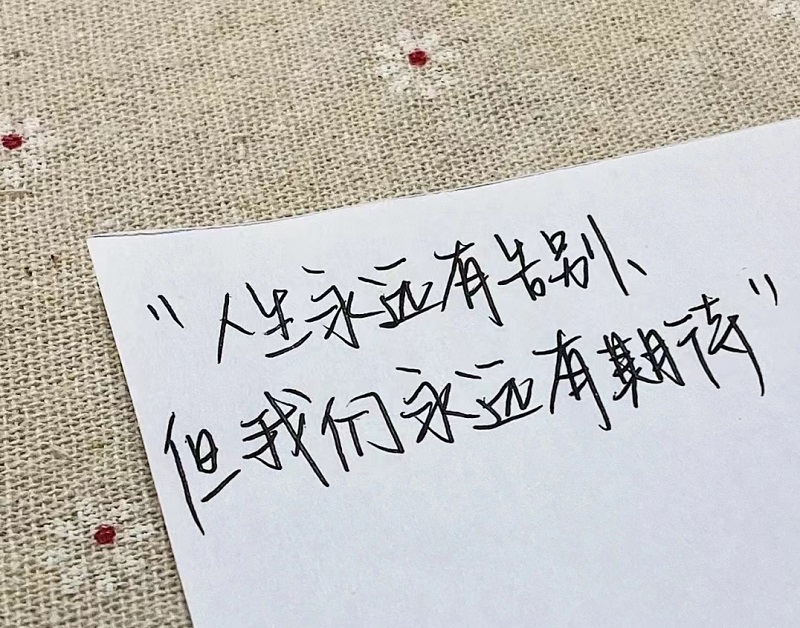 “人生永远有告别、
但我们永远有期待”